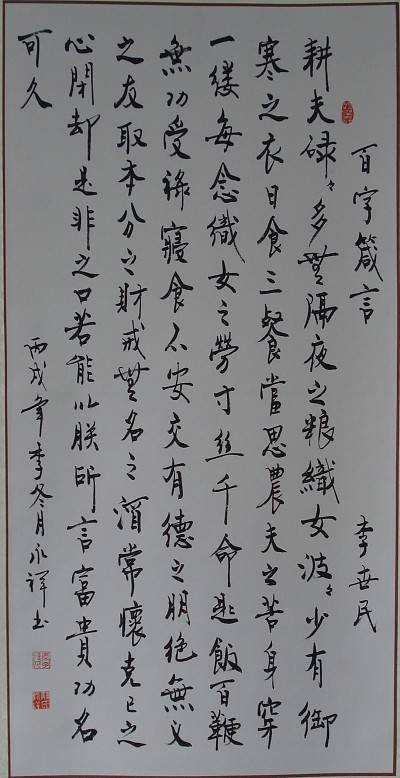 百字箴言 李世民
耕夫碌々多無隔夜之粮織女波々少有御
寒之衣日食三餐當思農夫之苦身穿
一缕每念織女之勞寸丝千命匙飯百鞭
無功受祿寢食不安交有德之朋绝無义
之友取本分之財戒無名之酒常懷克己之
心閉却是非之口若能以朕所言富貴功名
可久
丙戌年季冬月永祥书